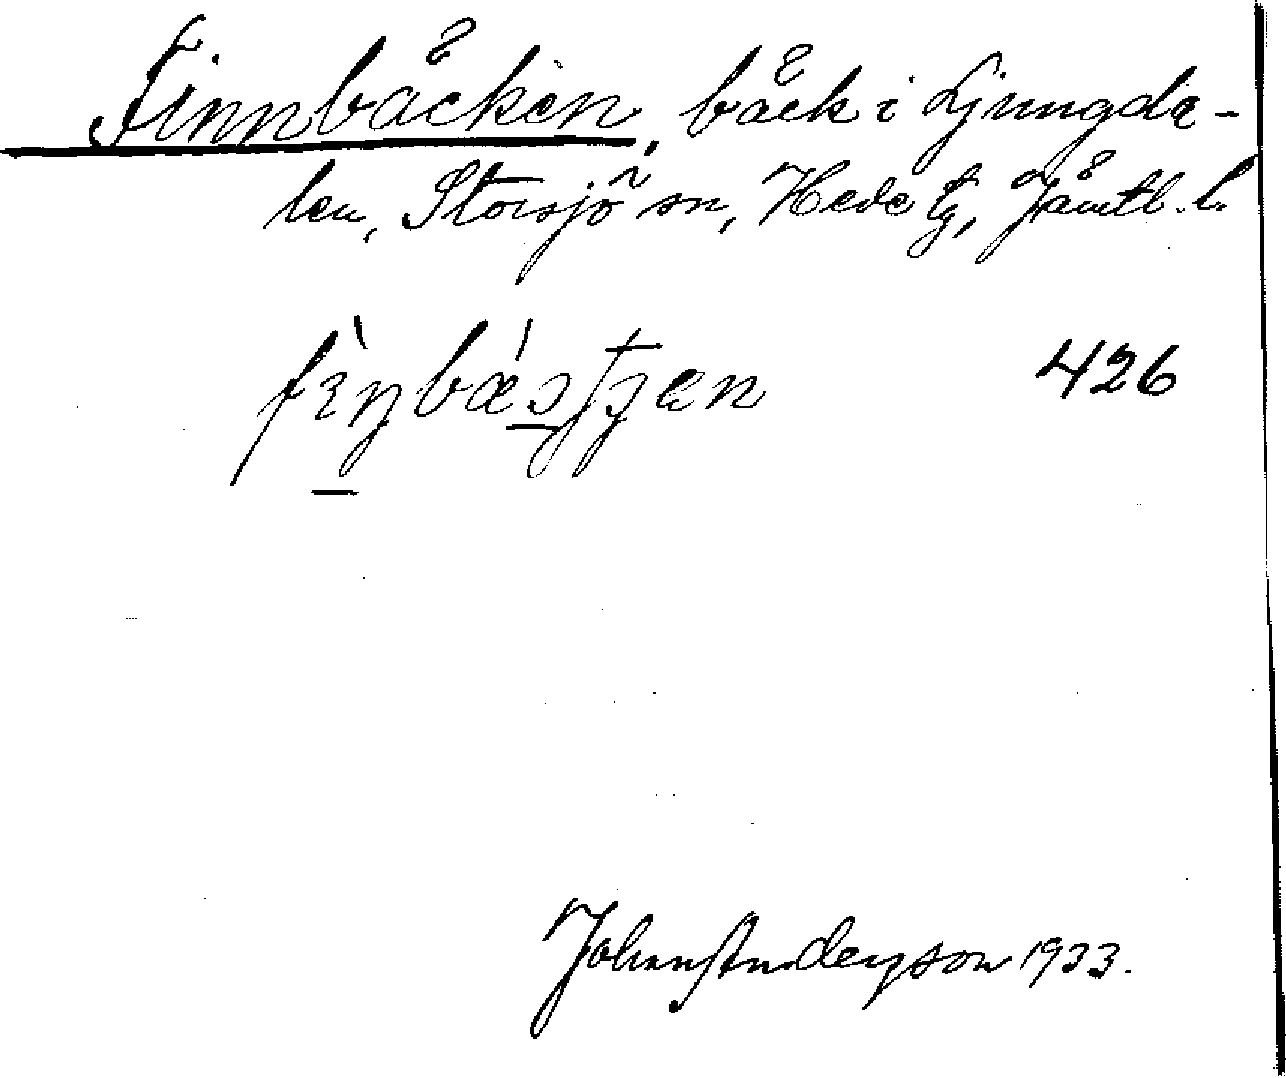 Finnbäcken, bäck i Ljungda-
len, Storsjö sn, Hede tg, Jämtl. l.
426
Johan Anderson 1933.